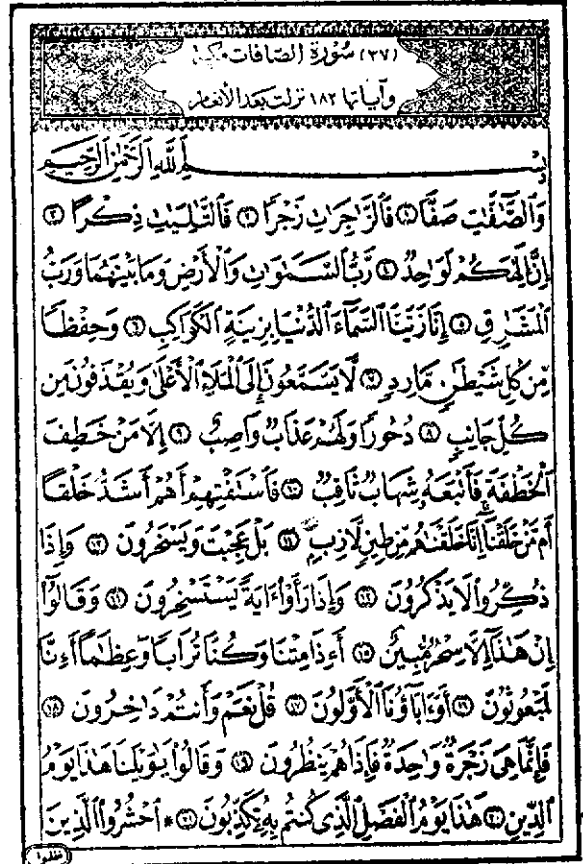 (٣٧) سُورَة الصَّافَات مكية
وآياتها ١٨٢ نزلت بعد الأنعام
بِسْمِ ٱللَّهِ ٱلرَّحْمَٰنِ ٱلرَّحِيمِ
وَٱلصَّٰٓفَّٰتِ صَفًّا ١ فَٱلزَّٰجِرَٰتِ زَجْرًا ٢ فَٱلتَّٰلِيَٰتِ ذِكْرًا ٣
إِنَّ إِلَٰهَكُمْ لَوَٰحِدٌ ٤ رَّبُّ ٱلسَّمَٰوَٰتِ وَٱلْأَرْضِ وَمَا بَيْنَهُمَا وَرَبُّ
ٱلْمَشَٰرِقِ ٥ إِنَّا زَيَّنَّا ٱلسَّمَآءَ ٱلدُّنْيَا بِزِينَةٍ ٱلْكَوَاكِبِ ٦ وَحِفْظًا
مِّن كُلِّ شَيْطَٰنٍ مَّارِدٍ ٧ لَّا يَسَّمَّعُونَ إِلَى ٱلْمَلَإِ ٱلْأَعْلَىٰ وَيُقْذَفُونَ مِن
كُلِّ جَانِبٍ ٨ دُحُورًا وَلَهُمْ عَذَابٌ وَاصِبٌ ٩ إِلَّا مَنْ خَطِفَ
ٱلْخَطْفَةَ فَأَتْبَعَهُۥ شِهَابٌ ثَاقِبٌ ١٠ فَٱسْتَفْتِهِمْ أَهُمْ أَشَدُّ خَلْقًا
أَم مَّنْ خَلَقْنَآ إِنَّا خَلَقْنَٰهُم مِّن طِينٍ لَّازِبٍ ١١ بَلْ عَجِبْتَ وَيَسْخَرُونَ ١٢ وَإِذَا
ذُكِّرُوا۟ لَا يَذْكُرُونَ ١٣ وَإِذَا رَأَوْا۟ ءَايَةً يَسْتَسْخِرُونَ ١٤ وَقَالُوٓا۟
إِنْ هَٰذَآ إِلَّا سِحْرٌ مُّبِينٌ ١٥ أَءِذَا مِتْنَا وَكُنَّا تُرَابًا وَعِظَٰمًا أَءِنَّا
لَمَبْعُوثُونَ ١٦ أَوَءَابَآؤُنَا ٱلْأَوَّلُونَ ١٧ قُلْ نَعَمْ وَأَنتُمْ دَٰخِرُونَ ١٨
فَإِنَّمَا هِىَ زَجْرَةٌ وَٰحِدَةٌ فَإِذَا هُمْ يَنظُرُونَ ١٩ وَقَالُوا۟ يَٰوَيْلَنَا هَٰذَا يَوْمُ
ٱلدِّينِ ٢٠ هَٰذَا يَوْمُ ٱلْفَصْلِ ٱلَّذِى كُنتُم بِهِۦ تُكَذِّبُونَ ٢١ ۞ ٱحْشُرُوا۟ ٱلَّذِينَ
ظلموا